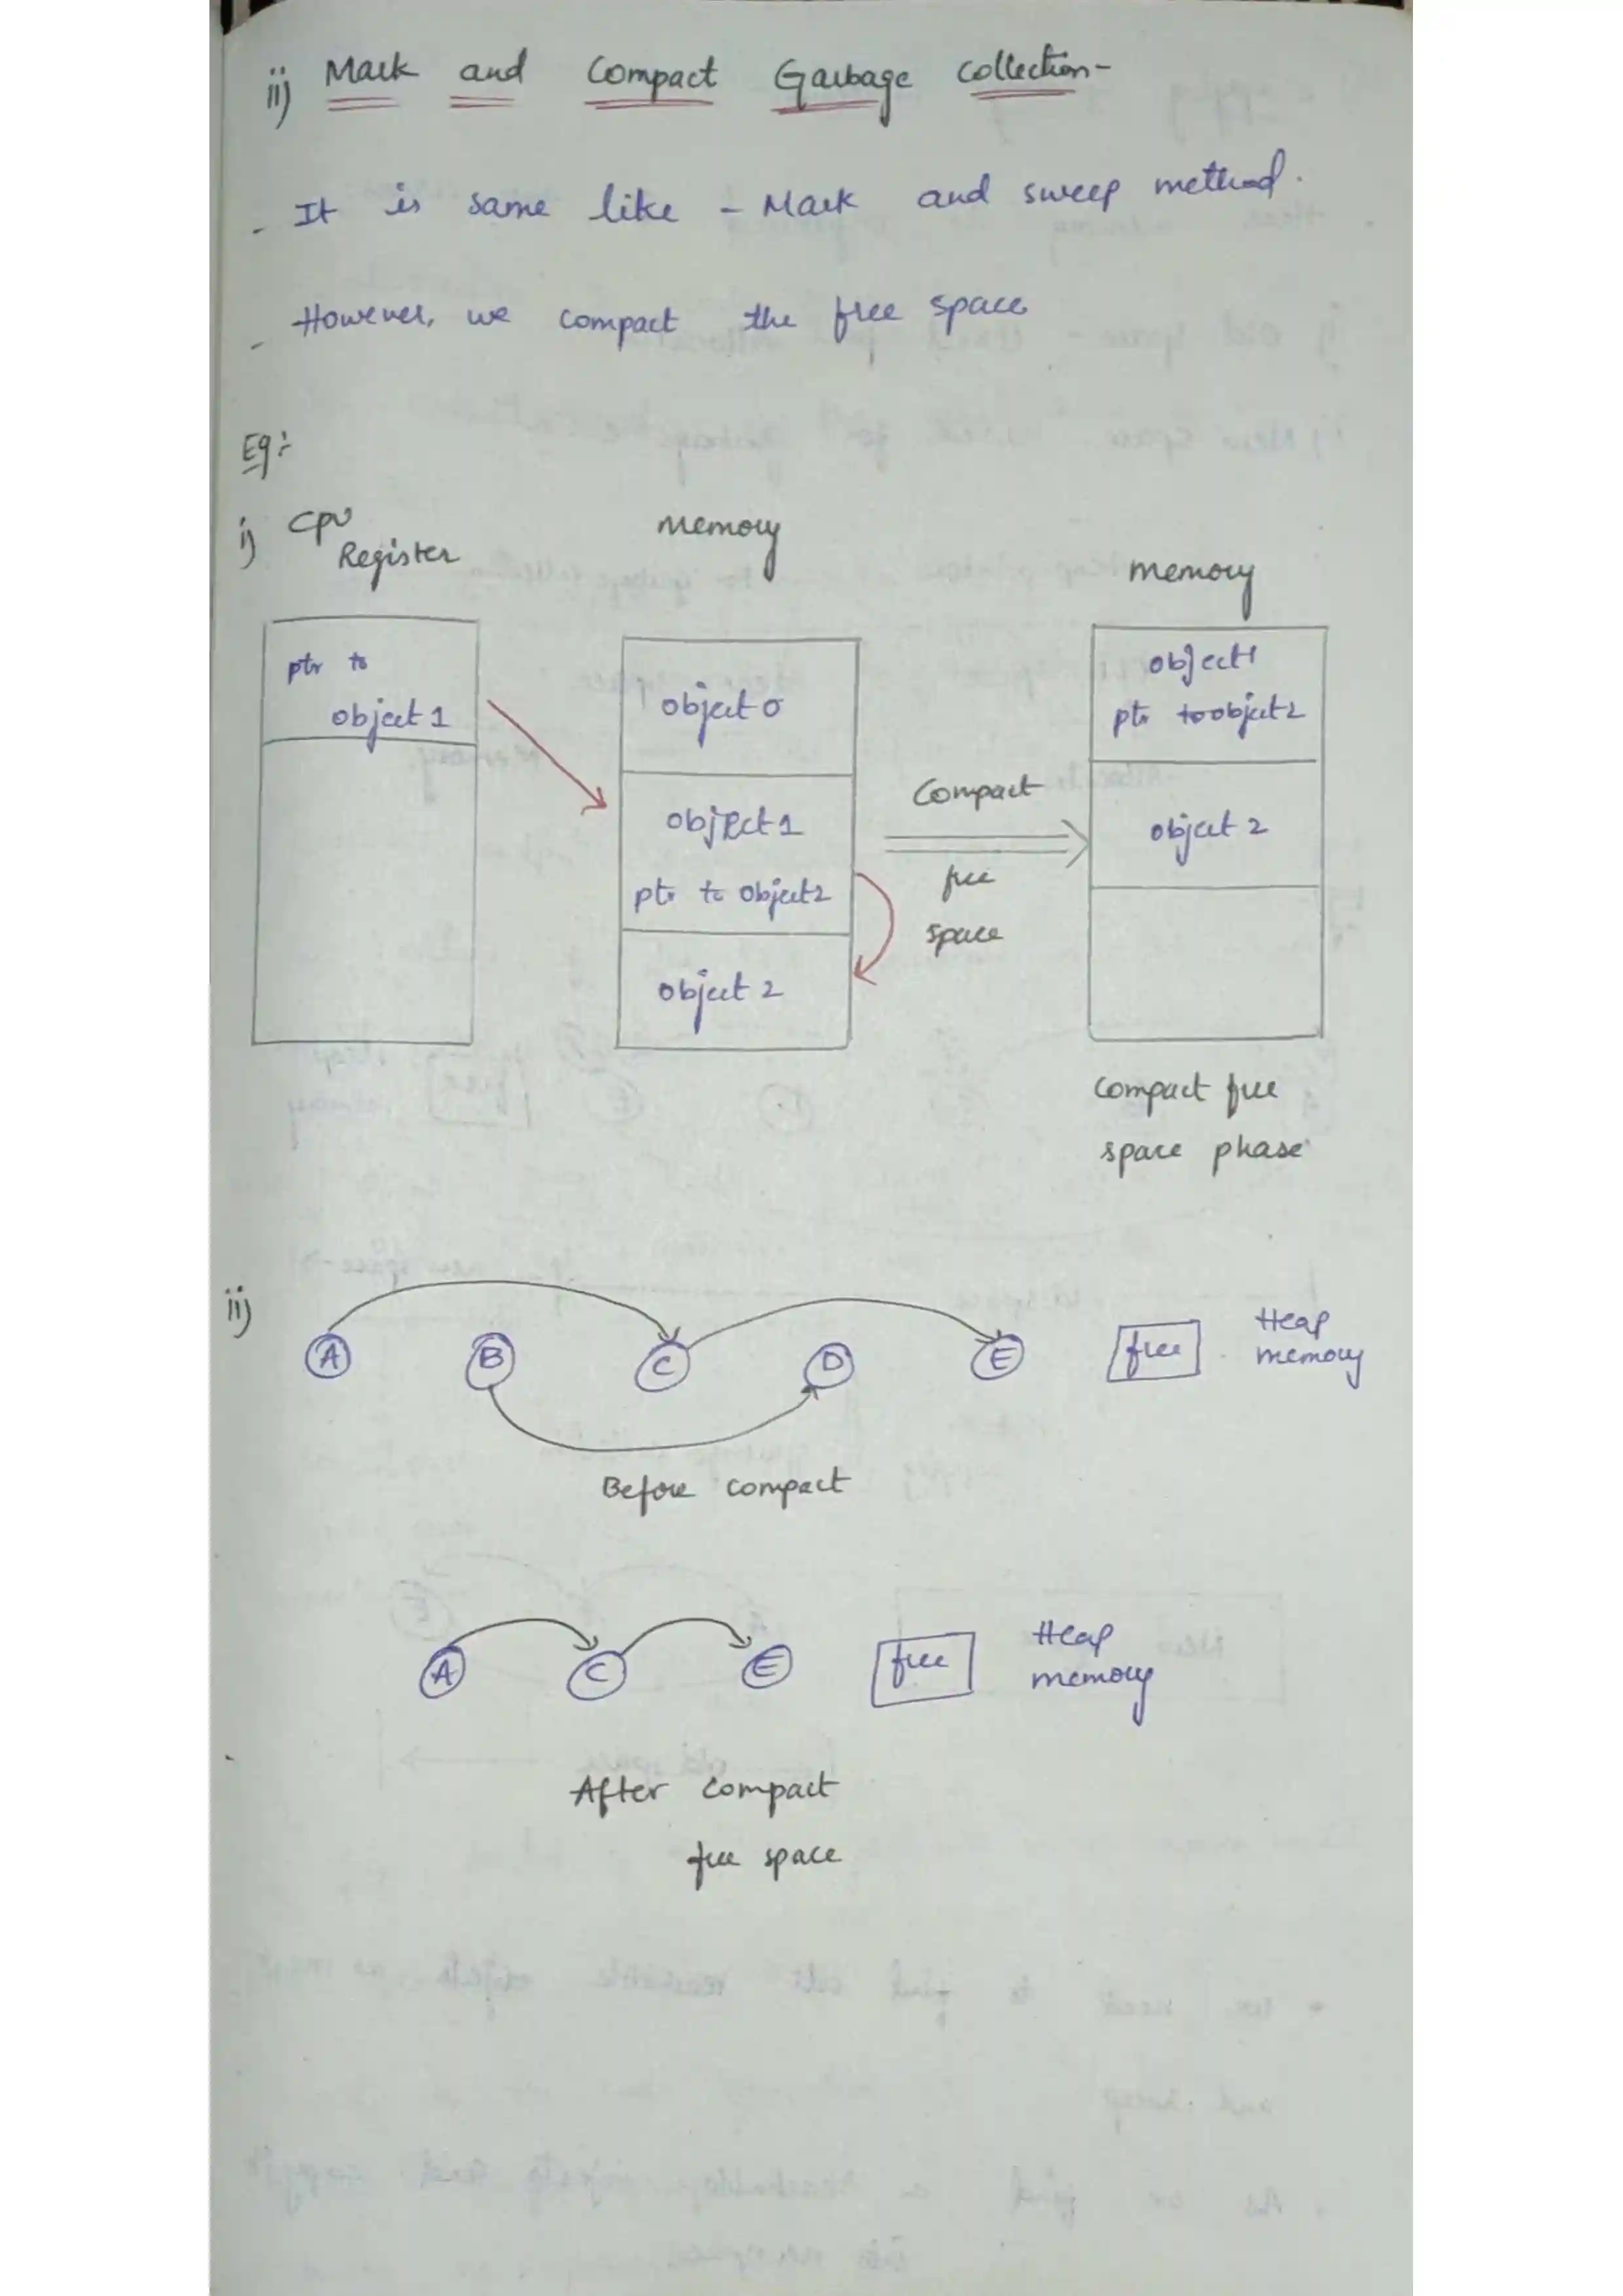 ii) Mark and Compact Garbage Collection-
- It is same like - Mark and sweep method.
- However, we compact the free space
Eg:-
i) CPU Register
memory
memory
ptr to
object 1
object 0
object 1
ptr to object2
object 2
Compact
free
space
object1
ptr to object 2
object 2
Compact free
space phase
ii)
A B C D E free Heap
memory
Before compact
A C E free Heap
memory
After compact
free space